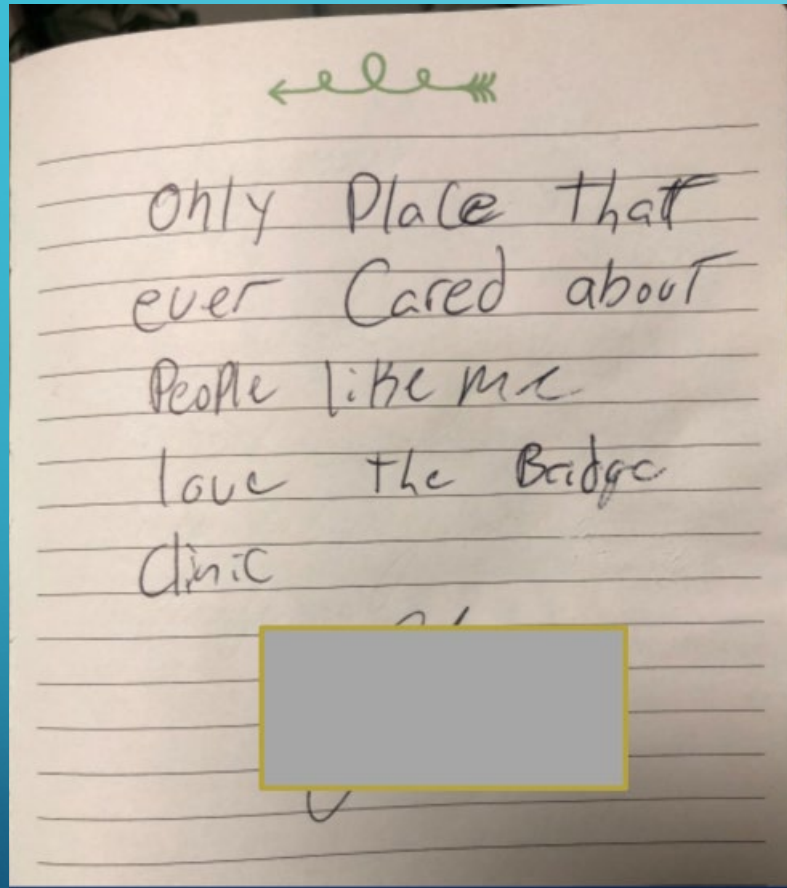 Only Place that
ever Cared about
People like me
love the Bridge
Clinic